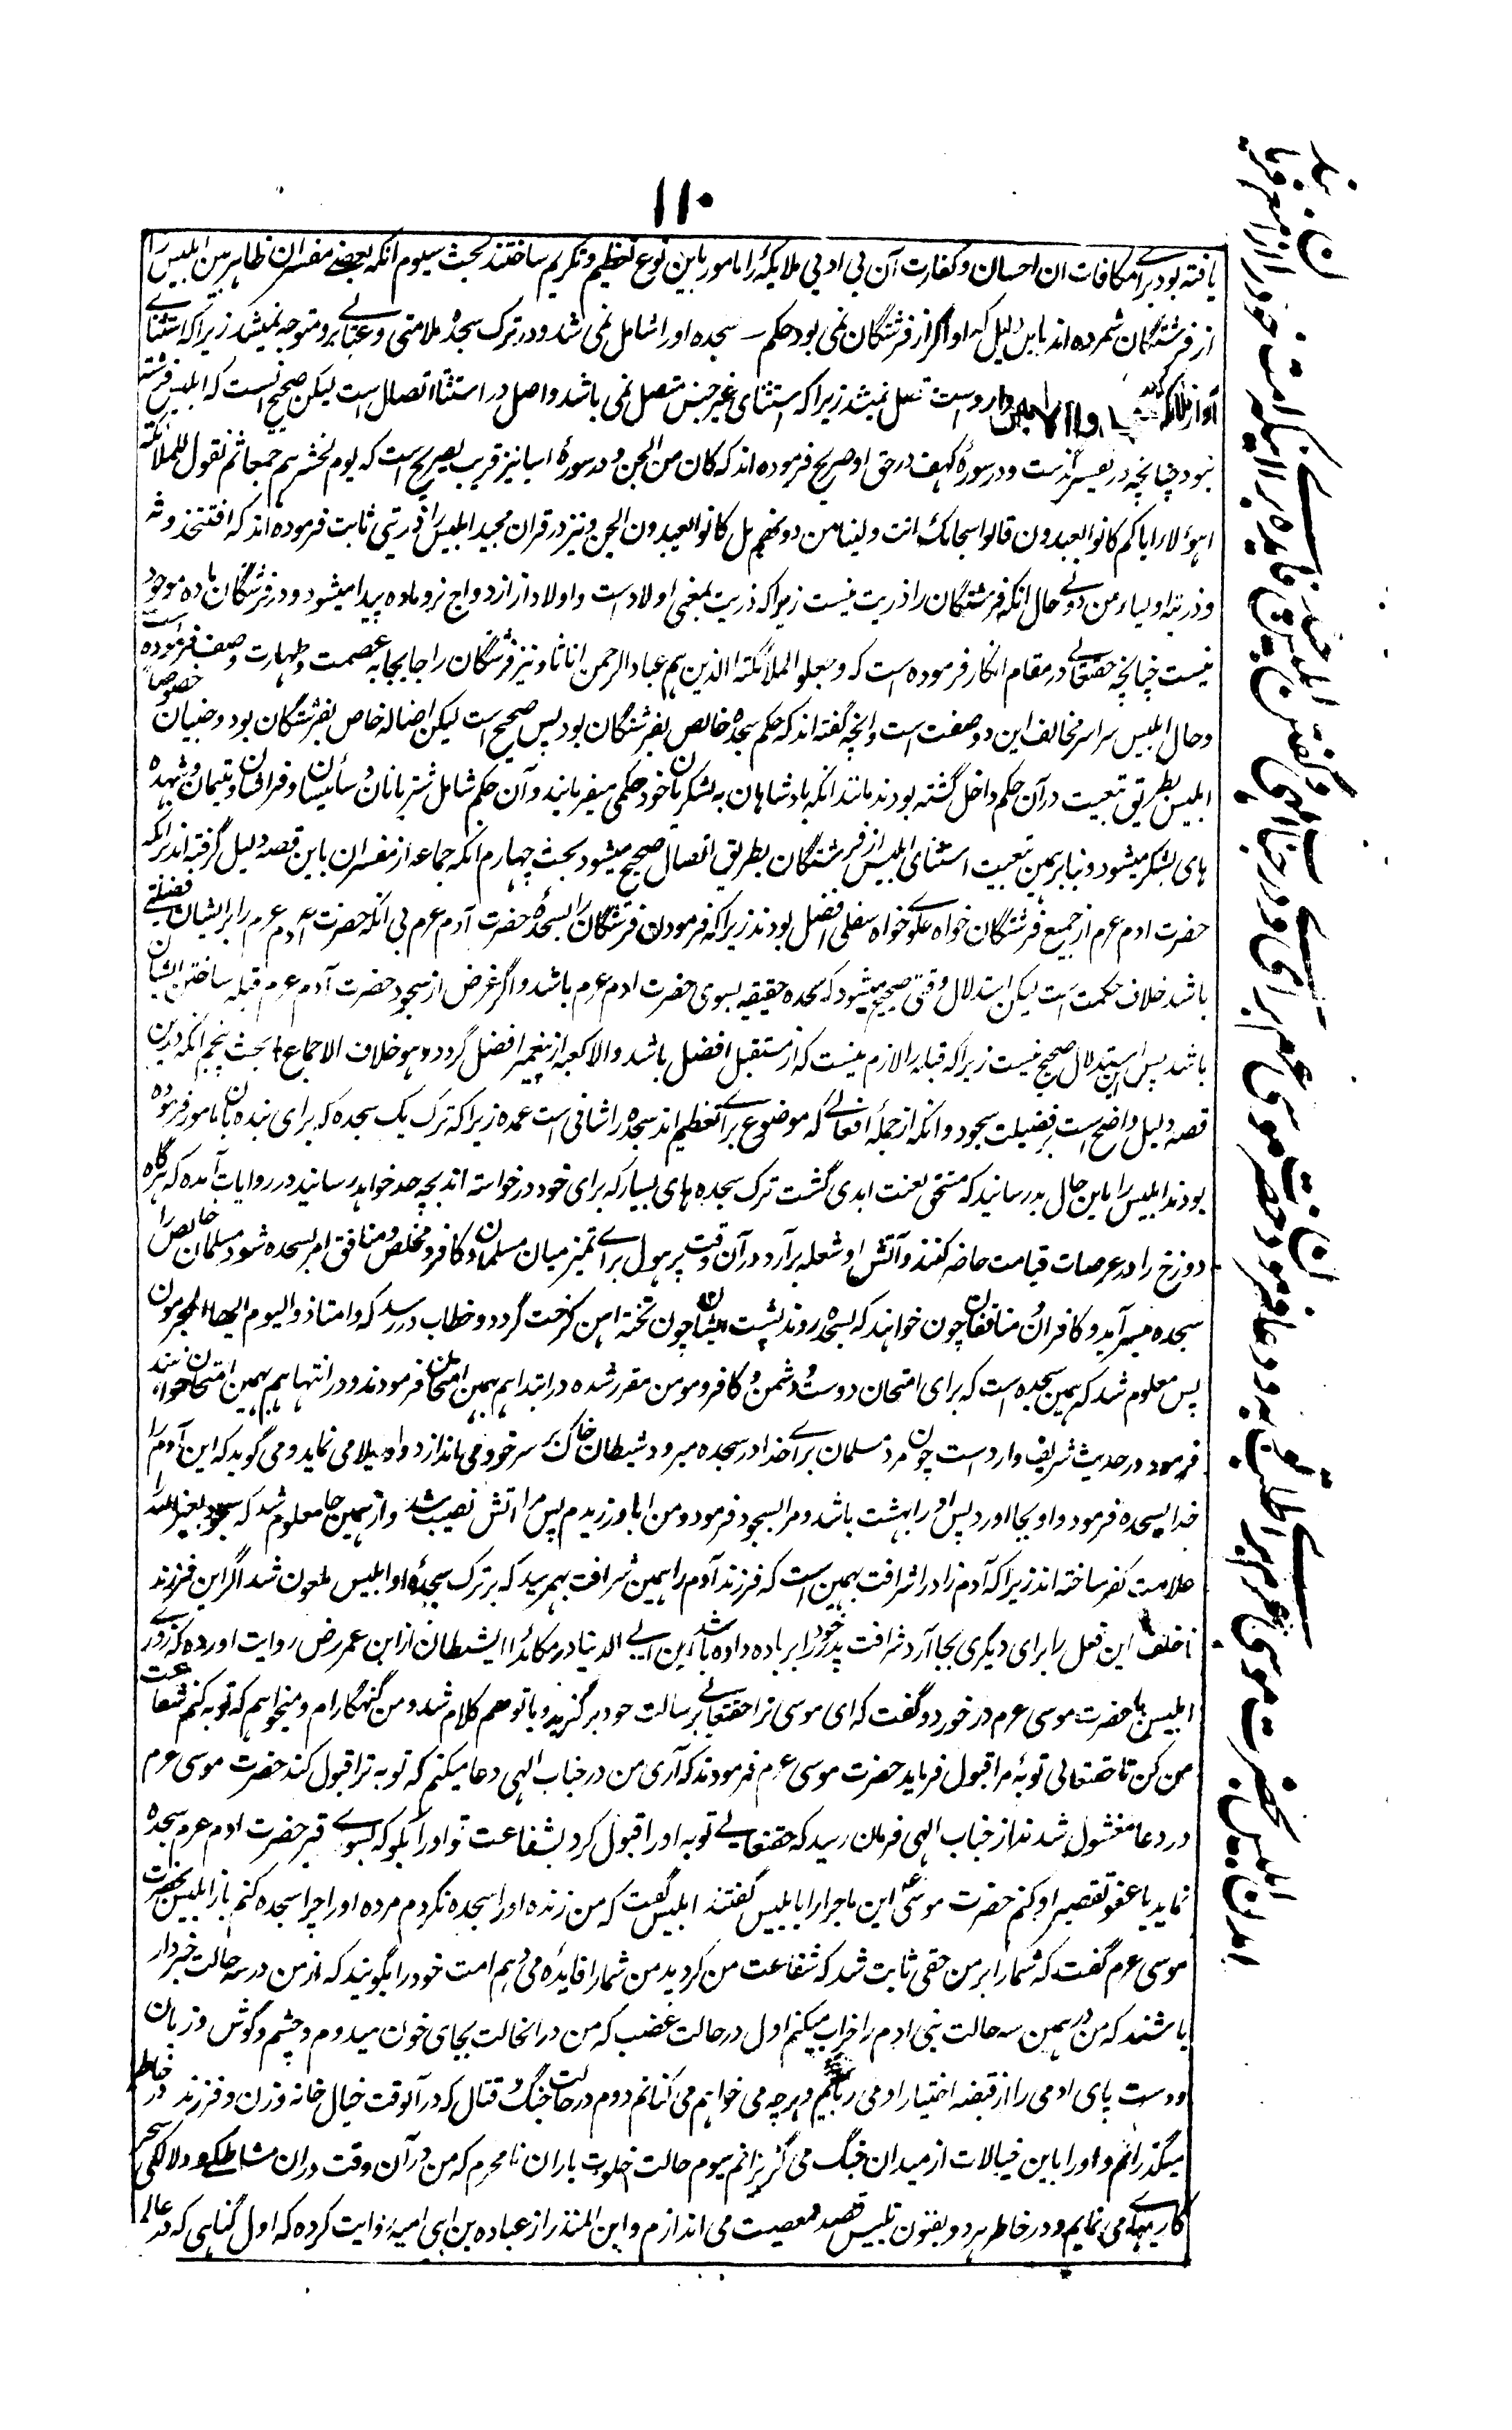 ۱۱۰
یافته بود برای مکافات ان احسان و کفارت آن بی ادبی ملایکه را مامور باین نوع تعظیم و تکریم ساختند بحث سیوم انکه بعضے مفسران ظاہر بین ابلیس را
از فرشتگان شمرده اند باین دلیل که او اگر از فرشتگان نمی بود حکم سجده او را شامل نمی شد و در ترک سجدهٔ ملامتی و عتابے برو متوجه نمیشد زیرا که استثناے
او از ملائکه که در وارد است متصل نمیشد زیرا که استثنای غیر جنس متصل نمی باشد و اصل در استثنا اتصال است لیکن صحیح آنست که ابلیس فرشته
نبود چنانچه در تفسیر گذشت و در سورهٔ کہف در حق او صریح فرموده اند که کان من الجن و در سورهٔ سبا نیز قریب بصریح است که یوم نحشرہم جمیعا ثم نقول للملائکة
اہؤلاء ایاکم کانوا یعبدون قالوا سبحانک انت ولینا من دونہم بل کانوا یعبدون الجن و نیز در قران مجید ابلیس را ذریتی ثابت فرموده اند که افتتخذونه
و ذریته اولیاء من دونے حال انکه فرشتگان را ذریت نیست زیرا که ذریت بمعنی اولاد است و اولاد از ازدواج نر و ماده پیدا میشود و در فرشتگان ماده موجود
نیست چنانچه حقتعالے در مقام انکار فرموده است که و جعلوا الملائکته الذین ہم عباد الرحمن اناثا و نیز فرشتگان را جابجا به عصمت و طہارت وصف فرموده است خصوصاً
و حال ابلیس سراسر مخالف این دو صفت است و انچه گفته اند که حکم سجده خالص بفرشتگان بود پس صحیح است لیکن اصاله خاص بفرشتگان بود و جنیان
ابلیس بطریق تبعیت در آن حکم داخل گشته بودند مانند انکه بادشاہان به لشکریان خود حکمی میفرمایند و آن حکم شامل شتربانان و سائسان و فراشان و یتیمان و شہده
ہای لشکر میشود و بنابر ہمین تبعیت استثنای ابلیس از فرشتگان بطریق اتصال صحیح میشود بحث چہارم انکه جماعه از مفسران باین قصه دلیل گرفته اند برانکه
حضرت ادم عرم از جمیع فرشتگان خواه علوی خواه سفلی افضل بودند زیرا که فرمودن فرشتگان را بسجدهٔ حضرت آدم عرم بی انکه حضرت آدم عرم را برایشان فضلیتے
باشد خلاف حکمت است لیکن استدلال وقتی صحیح میشود که سجده حقیقیه بسوی حضرت ادم عرم باشد و اگر غرض از سجود حضرت آدم عرم قبله ساختن ایشان
باشد پس این استدلال صحیح نیست زیرا که قبله را لازم نیست که از مستقبل افضل باشد والا کعبه از پیغمبر افضل گردد و ہو خلاف الاجماع بحث پنجم انکه درین
قصه دلیل واضح است بر فضیلت سجود و انکه از جملهٔ افعالے که موضوع براے تعظیم اند سجده را شانی است عمده زیرا که ترک یک سجده که برای بنده بآن مامور فرموده
بودند ابلیس را باین حال بد رسانید که مستحق لعنت ابدی گشت ترک سجده ہای بسیار که برای خود درخواسته اند بچه حد خواہد رسانید در روایات آمده که ہرگاه
دوزخ را در عرصات قیامت حاضر کنند و آتش او شعله برآرد در آن وقت پر ہول براے تمیز میان مسلمان و کافر و مخلص و منافق امر بسجده شود مسلمان خالص را
سجده میسر آید و کافران و منافقان چون خواہند که بسجده روند پشت ایشان چون تخته اہن کرخت گردد و خطاب در رسد که وامتازوا الیوم ایہا المجرمون
پس معلوم شد که ہمین سجده است که برای امتحان دوست و دشمن و کافر و مومن مقرر شده در ابتدا ہم ہمین امتحان فرمودند و در انتہا ہم ہمین امتحان خواہند
فرمود و در حدیث شریف وارد است چون مرد مسلمان براے خدا در سجده میرود شیطان خاک بر سر خود می اندازد و واویلا می نماید و می گوید که این آدم را
خدا بسجده فرمود و او بجا اورد پس او را بہشت باشد و مرا بسجود فرمود و من ابا ورزیدم پس مرا آتش نصیب شد و از ہمین جا معلوم شد که سجود بغیر اللہ را
علامت کفر ساخته اند زیرا که آدم زاد را شرافت بہمین است که فرزند آدم را ہمین شرافت بہم رسید که بر ترک سجدهٔ او ابلیس ملعون شد اگر این فرزند
ناخلف این فعل را برای دیگری بجا آرد شرافت پدر خود را برباده داده باشد ابن ابے الدنیا در مکائد الشیطان از ابن عمر رض روایت اورده که روزے
ابلیس با حضرت موسی عرم در خورد و گفت که ای موسی ترا حقتعالے برسالت خود برگزید و با تو ہم کلام شد و من گنہگارم و میخواہم که توبه کنم شفاعت
من کن تا حقتعالی توبهٔ مرا قبول فرماید حضرت موسی عرم فرمودند که آری من در جناب الہی دعا میکنم که توبه ترا قبول کند حضرت موسی عرم
در دعا مشغول شدند از جناب الہی فرمان رسید که حقتعالےٰ توبه او را قبول کرد بشفاعت تو او را بگو که بسوے قبر حضرت ادم عرم سجده
نماید تا عفو تقصیر او کنم حضرت موسیٰ ع این ماجرا را با ابلیس گفتند ابلیس گفت که من زنده او را سجده نکردم مرده او را چرا سجده کنم باز ابلیس بحضرت
موسی عرم گفت که شما را بر من حقی ثابت شد که شفاعت من کردید من شما را فایده می دہم امت خود را بگوئید که از من در سه حالت خبردار
باشند که من در ہمین سه حالت بنی ادم را خراب میکنم اول در حالت غضب که من در انحالت بجای خون میدوم و چشم و گوش و زبان
و دست پای ادمی را از قبضه اختیار او می ربایم و ہرچه می خواہم می کنانم دوم در حالت جنگ و قتال که در آنوقت خیال خانه و زن و فرزند در خاطر
میگذرانم و او را باین خیالات از میدان جنگ می گریزانم سیوم حالت خلوت با زنان نامحرم که من در آن وقت دران مشاطگی و دلالگی سحر
کاریہا می نمایم و در خاطر ہر دو بفنون تلبیس قصد معصیت می اندازم و ابن المنذر از عباده بن ابی امیه روایت کرده که اول گناہی که در عالم